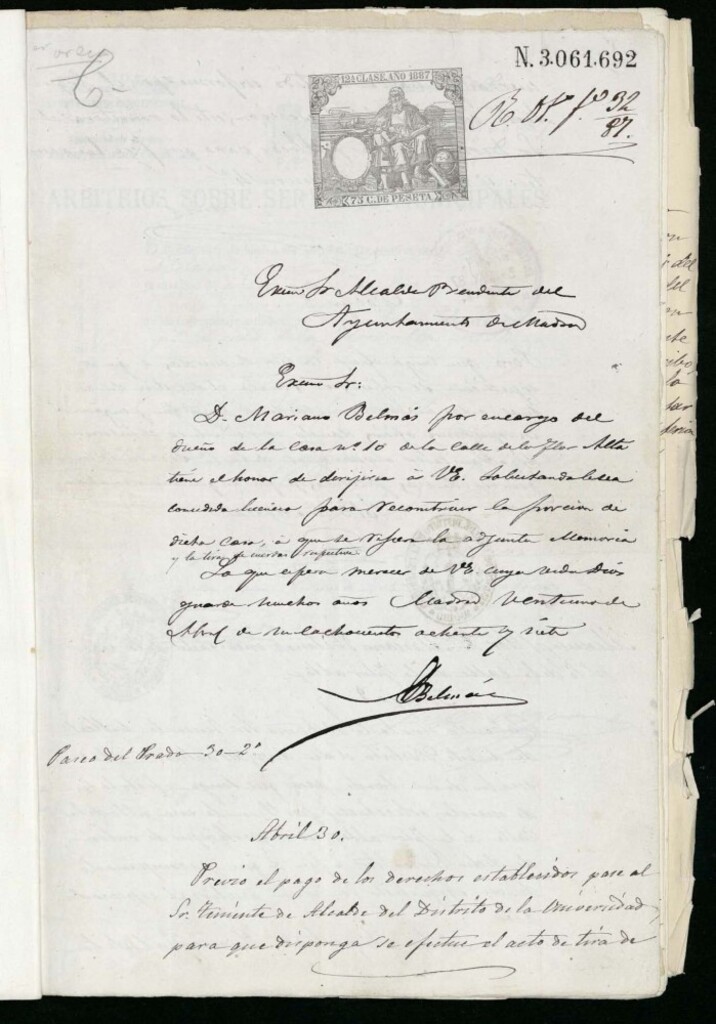 N. 3.061.692
12ª CLASE. AÑO 1887
75 C. DE PESETA
fº 32
87.
Excmo Sr Alcalde Presidente del
Ayuntamiento de Madrid
Excmo Sr:
D. Mariano Belmás por encargo del
dueño de la casa nº 10 de la calle de la Flor Alta
tiene el honor de dirijirse á V.E. solicitando le sea
concedida licencia para reconstruir la porcion de
dicha casa, á que se refiere la adjunta Memoria
y la tira de cuerdas respectiva
Lo que espera merecer de V.E. cuya vida Dios
guarde muchos años Madrid veintiuno de
Abril de mil ochocientos ochenta y siete
MBelmás
Paseo del Prado 30-2º
Abril 30.
Previo el pago de los derechos establecidos pase al
Sr. Teniente de Alcalde del Distrito de la Universidad
para que disponga se efectue el acto de tira de